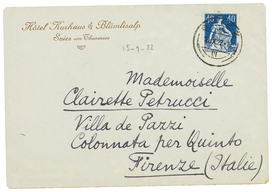 Hôtel Kurhaus & Blümlisalp
Spiez am Thunersee
40 40
15-9-22
IV
Mademoiselle
Clairette Petrucci
Villa de Pazzi
Colonnata per Quinto
Firenze (Italie)